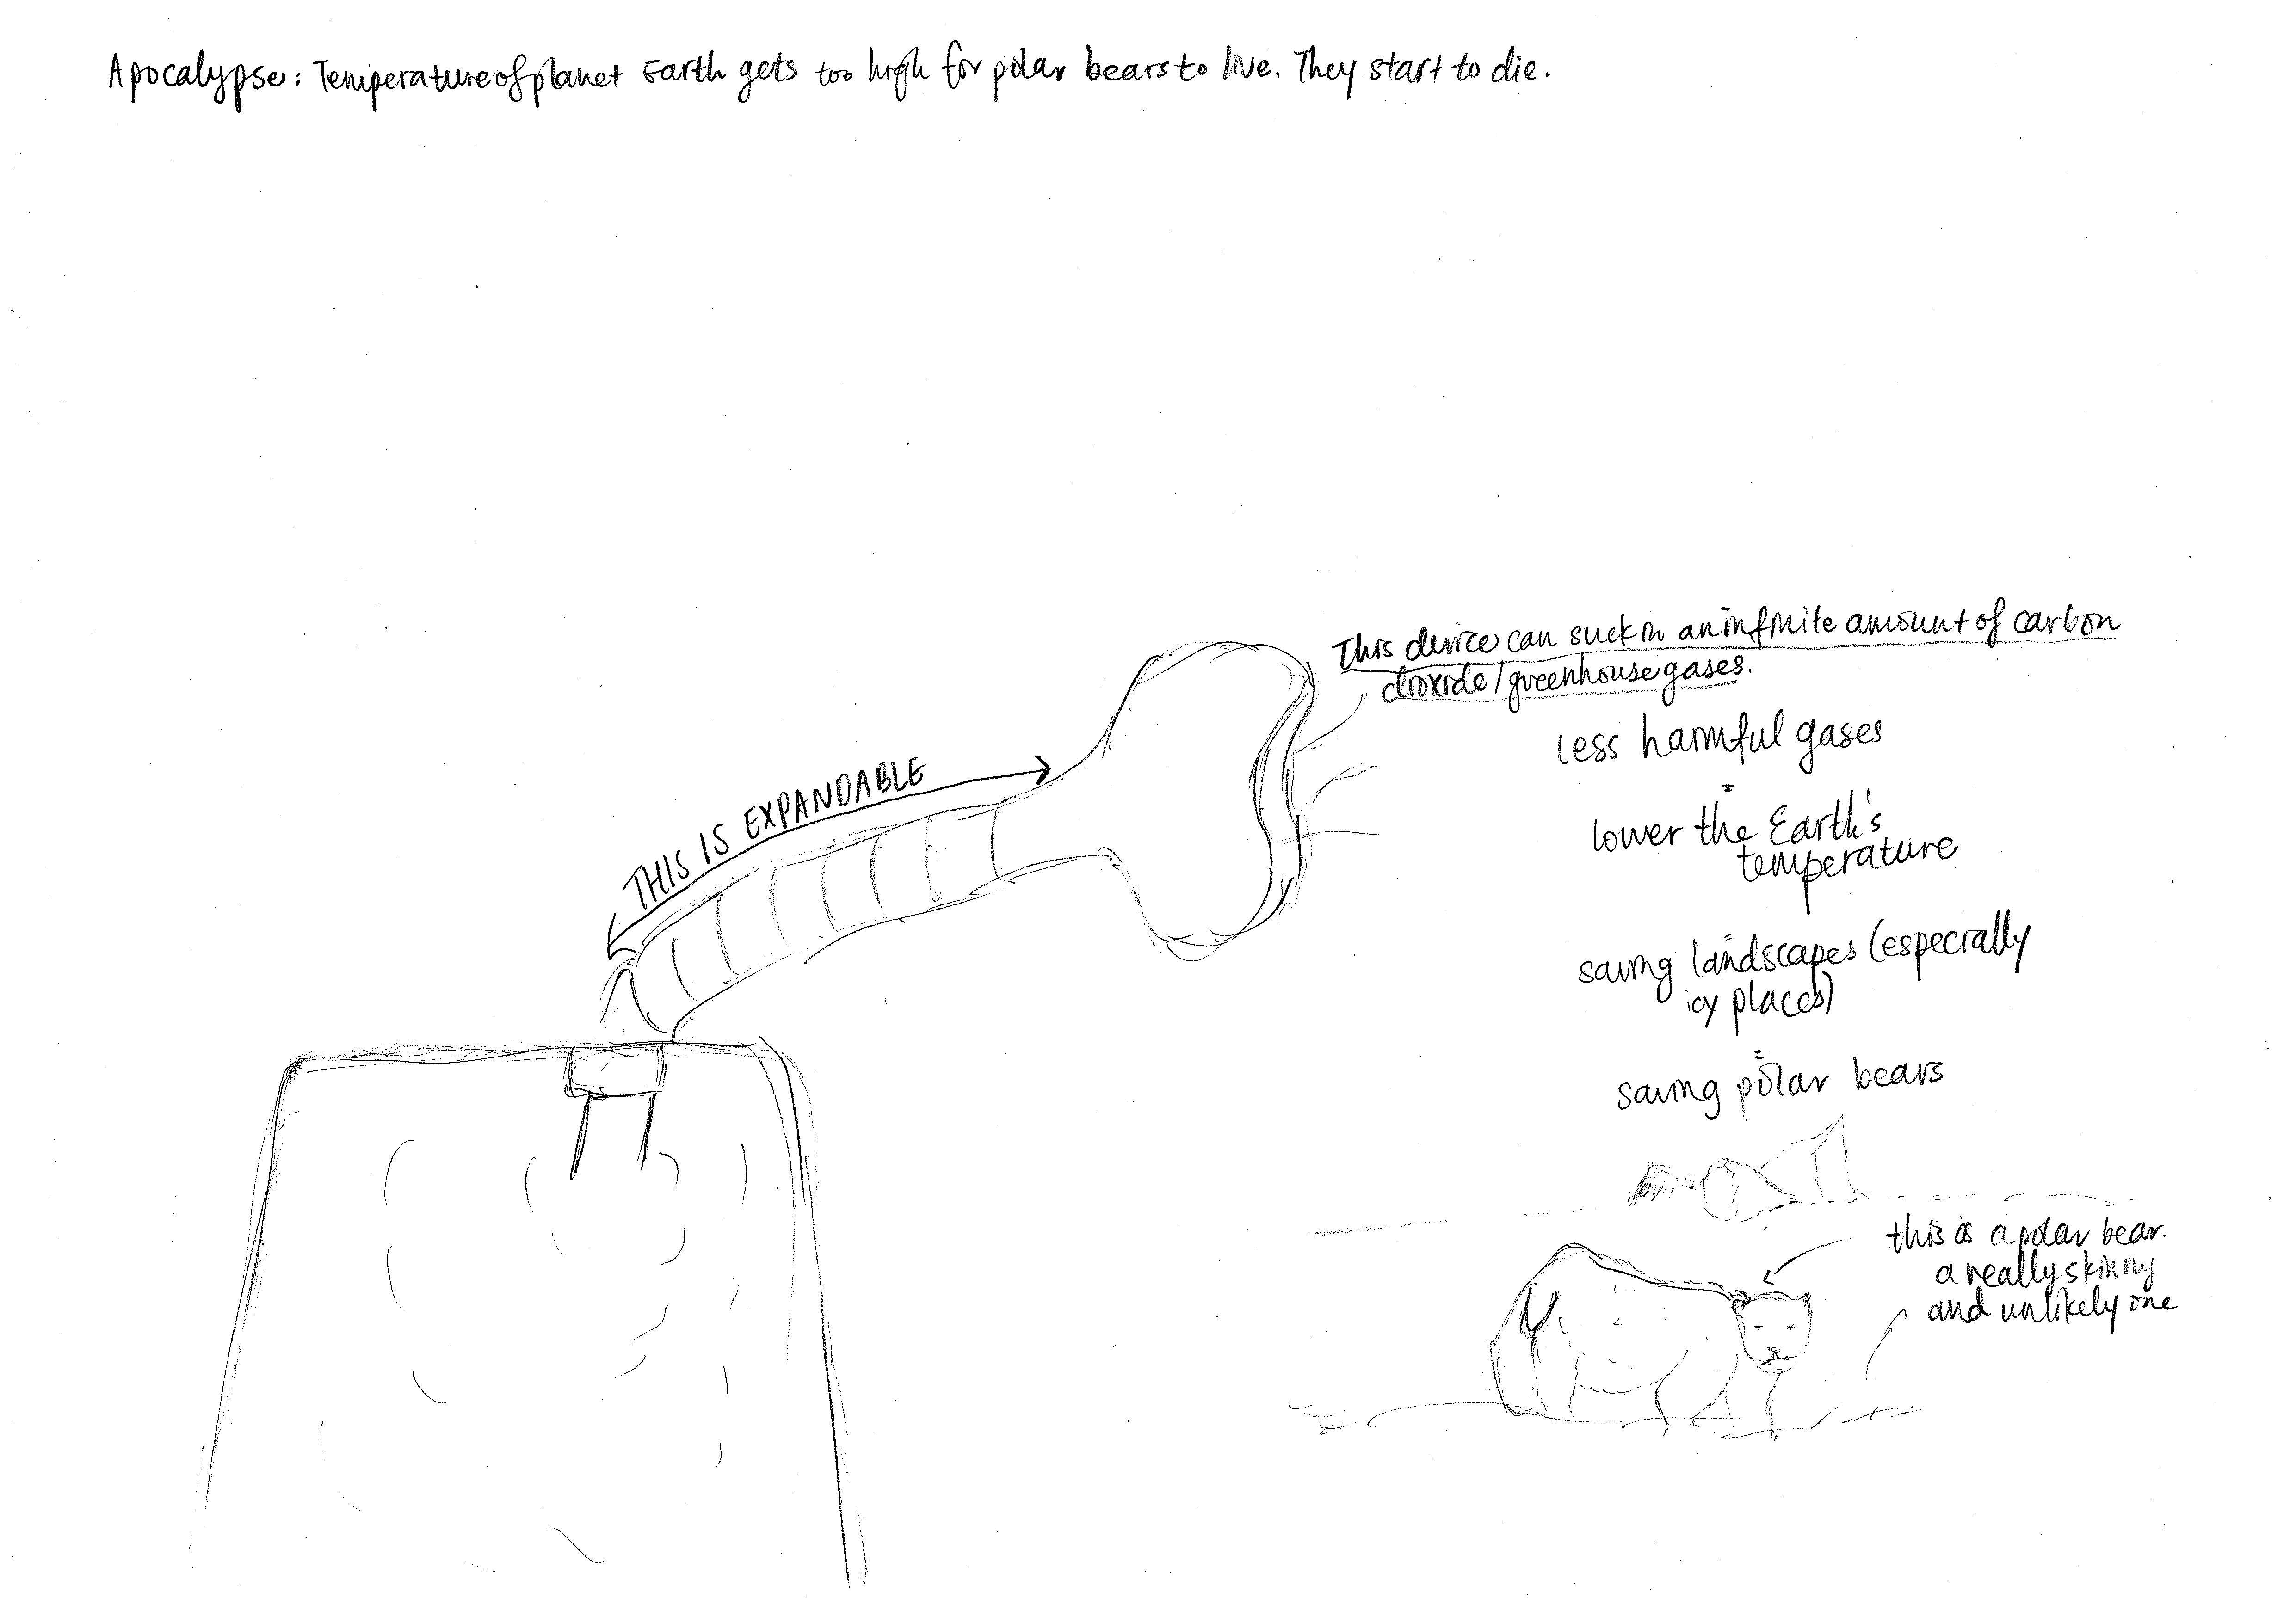 Apocalypse: Temperature of planet Earth gets too high for polar bears to live. They start to die.
This device can suck in an infinite amount of carbon
dioxide / greenhouse gases.
less harmful gases
=
lower the Earth's
temperature
=
saving landscapes (especially
icy places)
=
saving polar bears
THIS IS EXPANDABLE
this is a polar bear.
a really skinny
and unlikely one